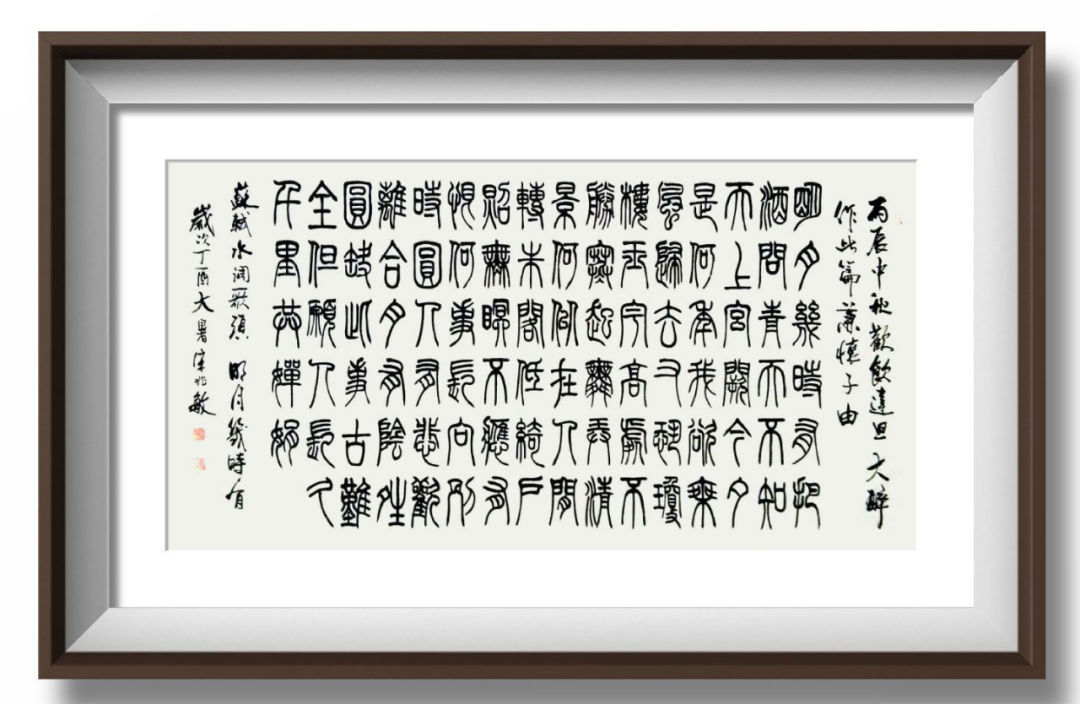 丙辰中秋歡飲達旦大醉
作此篇兼懷子由
明月幾時有把
酒問青天不知
天上宮闕今夕
是何年我欲乘
風歸去又恐瓊
樓玉宇高處不
勝寒起舞弄清
景何似在人間
轉朱閣低綺戶
照無眠不應有
恨何事長向別
時圓人有悲歡
離合月有陰晴
圓缺此事古難
全但願人長久
千里共嬋娟
蘇軾水調歌頭 明月幾時有
歲次丁酉大暑